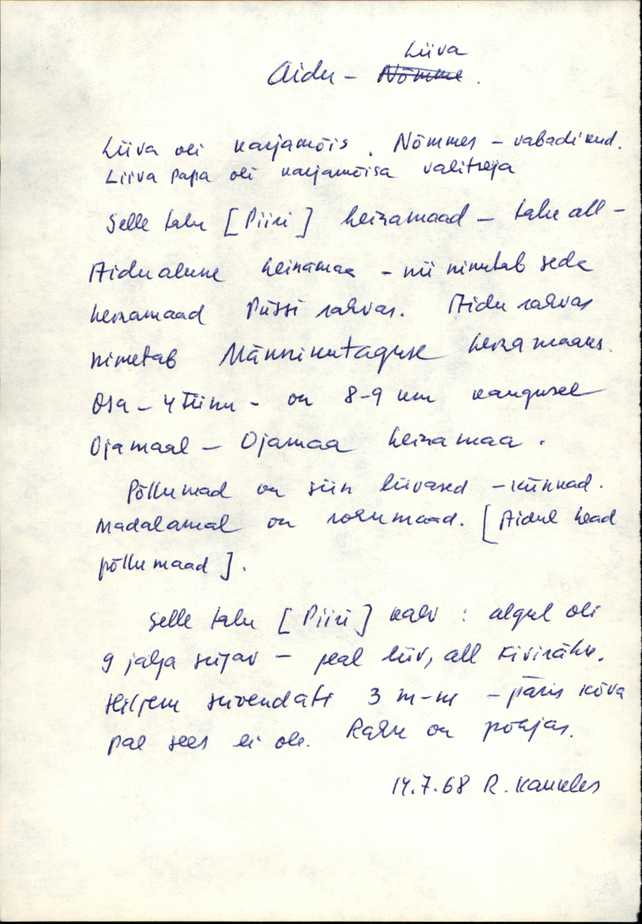 Liiva
Aidu – Nõmme.
Liiva oli karjamõis. Nõmmes – vabadikud.
Liiva papa oli karjamõisa valitseja
Selle talu [Piiri] heinamaad – talu all –
Aidualune heinamaa – nii nimetab seda
heinamaad Püssi rahvas. Aidu rahvas
nimetab Männikutaguse heinamaaks.
Osa – 4 tiinu – on 8–9 km kaugusel
Ojamaal – Ojamaa heinamaa.
Põllumad on siin liivased – künkad.
Madalamal on rohumaad. [Aidul head
põllumaad].
Selle talu [Piiri] kaev: algul oli
9 jalga sügav – peal liiv, all kivirähk.
Hiljem süvendati 3 m-ni – päris kõva
pae sees ei ole. Rahk on põhjas.
14.7.68 R. Kaukles